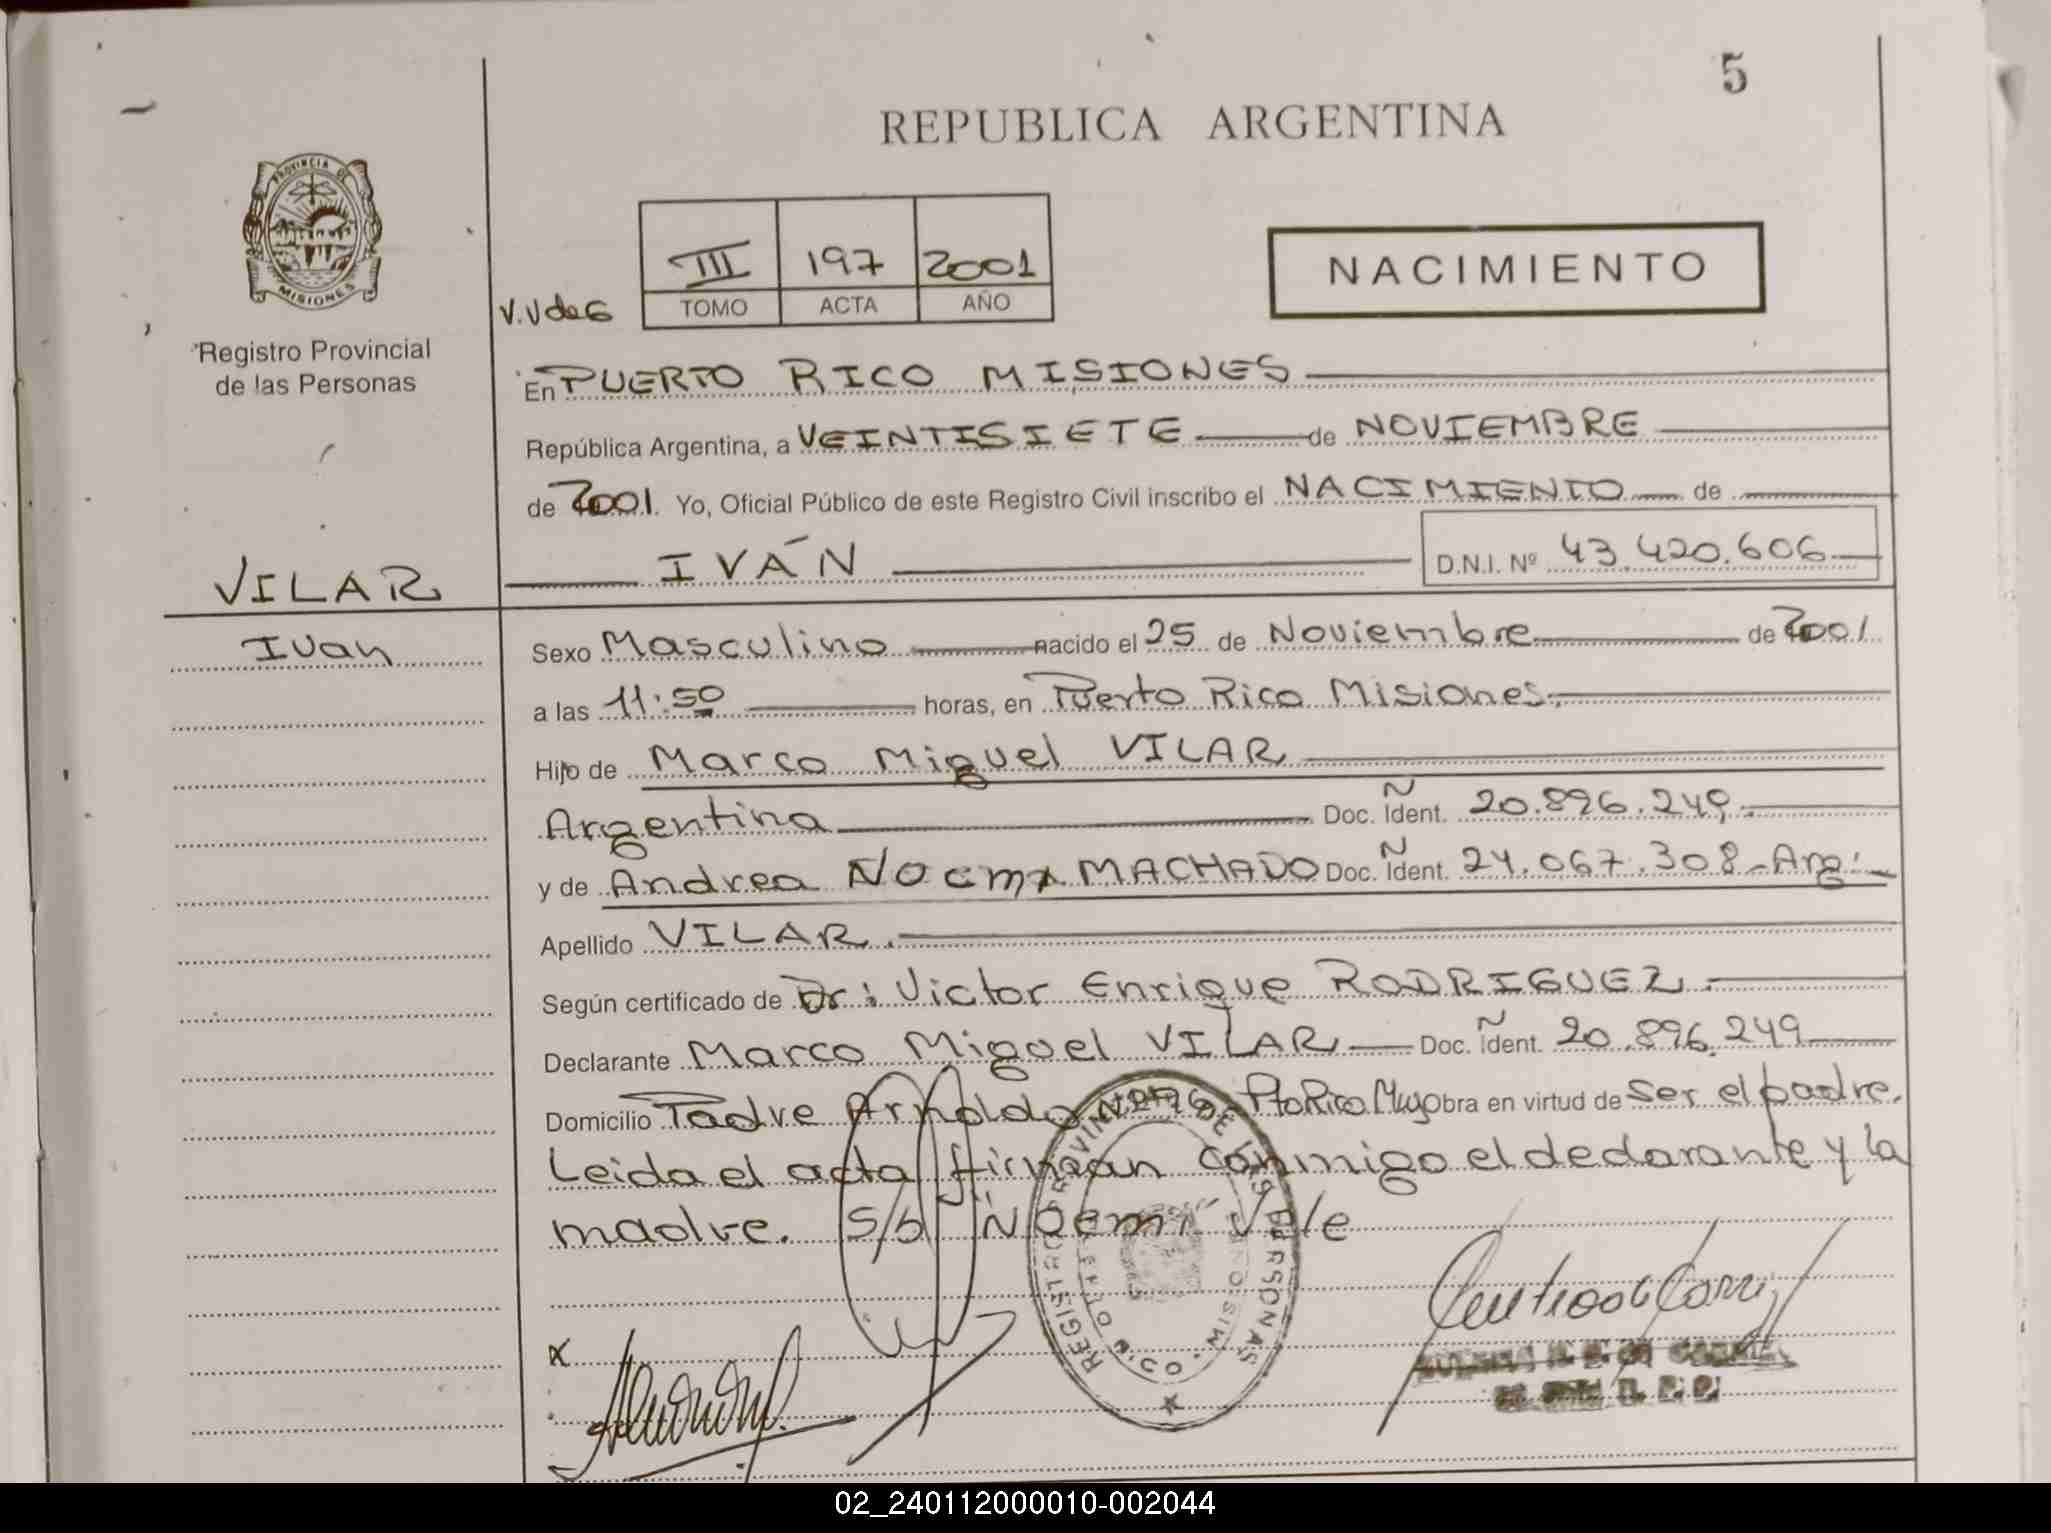 5
REPUBLICA ARGENTINA
PROVINCIA DE
MISIONES
Registro Provincial
de las Personas
III 197 2001
TOMO ACTA AÑO
NACIMIENTO
V.V de G
En PUERTO RICO MISIONES
República Argentina, a VEINTISIETE de NOVIEMBRE
de 2001. Yo, Oficial Público de este Registro Civil inscribo el NACIMIENTO de
IVÁN
D.N.I. Nº 43.420.606
VILAR
Ivan
Sexo Masculino nacido el 25 de Noviembre de 2001
a las 11:50 horas, en Puerto Rico Misiones.
Hijo de Marco Miguel VILAR
Argentina Doc. Ident. Ñ 20.896.249.
y de Andrea Noemi MACHADO Doc. Ident. Ñ 24.067.308 - Arg:
Apellido VILAR.
Según certificado de Dr: Victor Enrique RODRIGUEZ.
Declarante Marco Miguel VILAR Doc. Ident. Ñ 20.896.249
Domicilio Padre Arnoldo Pto Rico Mnes obra en virtud de Ser el padre.
Leida el acta firman conmigo el declarante y la
madre. S/b Ñ Noemi Vale
REGISTRO PROVINCIAL DE LAS PERSONAS
X
02_240112000010-002044